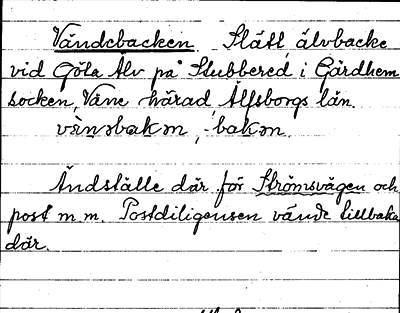 Vändebacken Slätt älvbacke
vid Göta Älv på Stubbered i Gärdhem
socken, Väne härad, Älfsborgs län.
vän bakən, -bakən.
Ändställe där för Strömsvägen och
post m.m. Postdiligensen vände tillbaka
där.